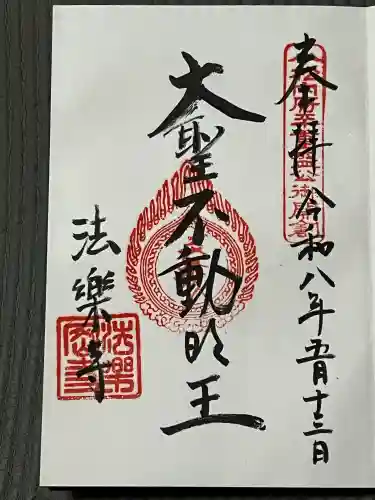 奉拝 令和八年五月十三日
大聖不動明王
法樂寺
法樂寺